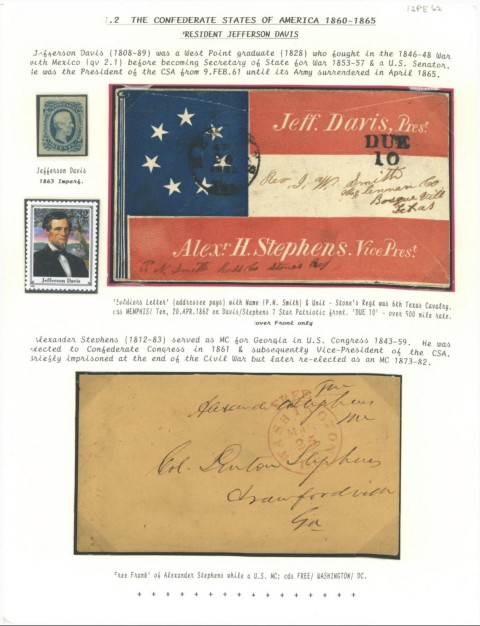 12PE62
.2 THE CONFEDERATE STATES OF AMERICA 1860-1865
PRESIDENT JEFFERSON DAVIS
Jefferson Davis (1808-89) was a West Point graduate (1828) who fought in the 1846-48 War
with Mexico (qv 2.1) before becoming Secretary of State for War 1853-57 & a U.S. Senator.
He was the President of the CSA from 9.FEB.61 until its Army surrendered in April 1865.
Jeff. Davis, Prest.
DUE
10
Rev J. W. Smith
McLennan Co
Bosqueville
Texas
Alexr H. Stephens. Vice Prest.
P. N. Smith Stones Regt
Jefferson Davis
1863 Imperf.
Jefferson Davis
'Soldiers Letter' (addressee pays) with Name (P.N. Smith) & Unit - Stone's Regt was 6th Texas Cavalry.
cds MEMPHIS/ Ten, 20.APR.1862 on Davis/Stephens 7 Star Patriotic front. 'DUE 10' - over 500 mile rate.
Cover Front only
Alexander Stephens (1812-83) served as MC for Georgia in U.S. Congress 1843-59. He was
elected to Confederate Congress in 1861 & subsequently Vice-President of the CSA.
Briefly imprisoned at the end of the Civil War but later re-elected as an MC 1873-82.
Free
Alexander Stephens
MC
FREE
WASHINGTON
Col. Linton Stephens
Crawfordville
Ga
'Free Frank' of Alexander Stephens while a U.S. MC; cds FREE/ WASHINGTON/ DC.
+ + + + + + + + + + + + + + + +